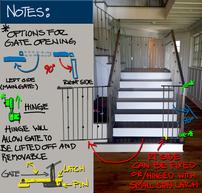 NOTES:
* OPTIONS FOR
GATE OPENING
90°
LEFT SIDE
(MAIN GATE)
RIGHT SIDE
HINGE
HINGE WILL
ALLOW GATE TO
BE LIFTED OFF AND
REMOVABLE
GATE
LATCH
PIN
RT SIDE
CAN BE FIXED
OR HINGED WITH
SMALL GRAB LATCH